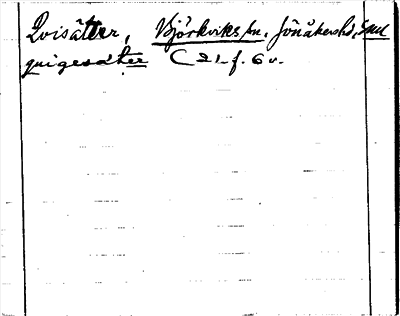 Qvisätter, Björkviks sn. Jönåkers hd, Sml
quigesäter C 21 f. 6 v.